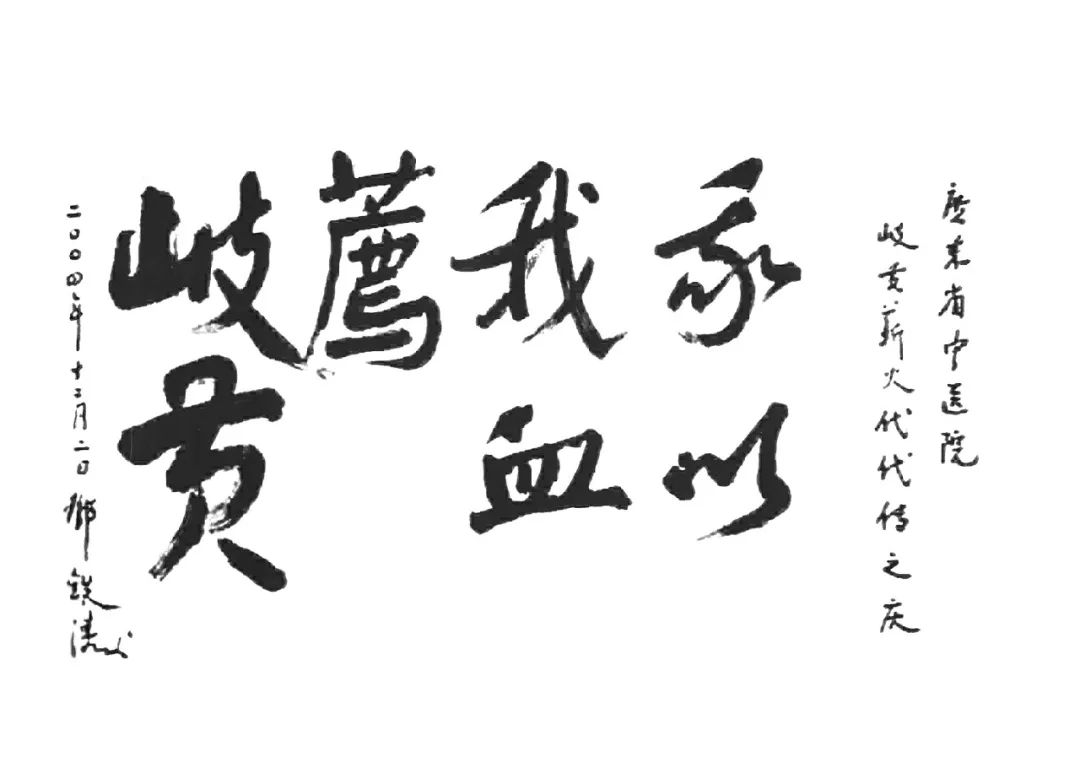 廣东省中医院
岐黄薪火代代传之庆
我以
我血
薦
岐黄
二〇〇四年十二月二日 鄧鐵涛